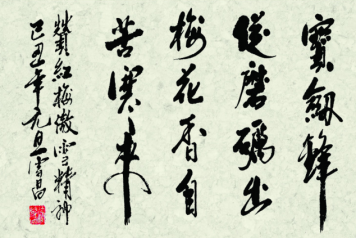 寳劍鋒
從磨礪出
梅花香自
苦寒来
贊紅梅傲雪精神
己丑年元旦清昌